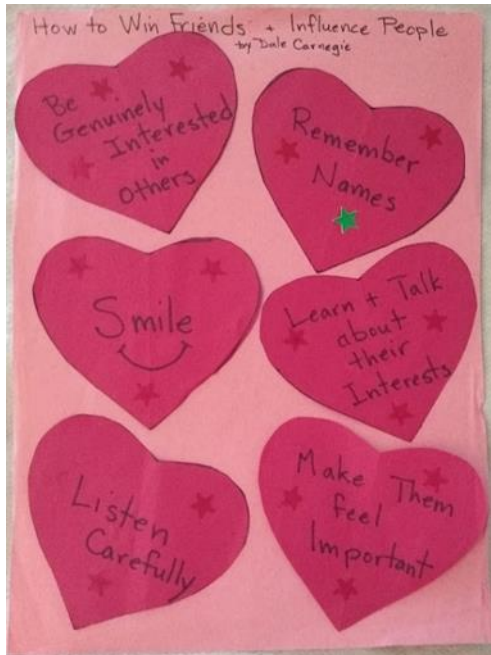 How to Win Friends + Influence People
by Dale Carnegie
Be
Genuinely
Interested
in
Others
Remember
Names
Smile
Learn + Talk
about
their
Interests
Listen
Carefully
Make Them
feel
Important